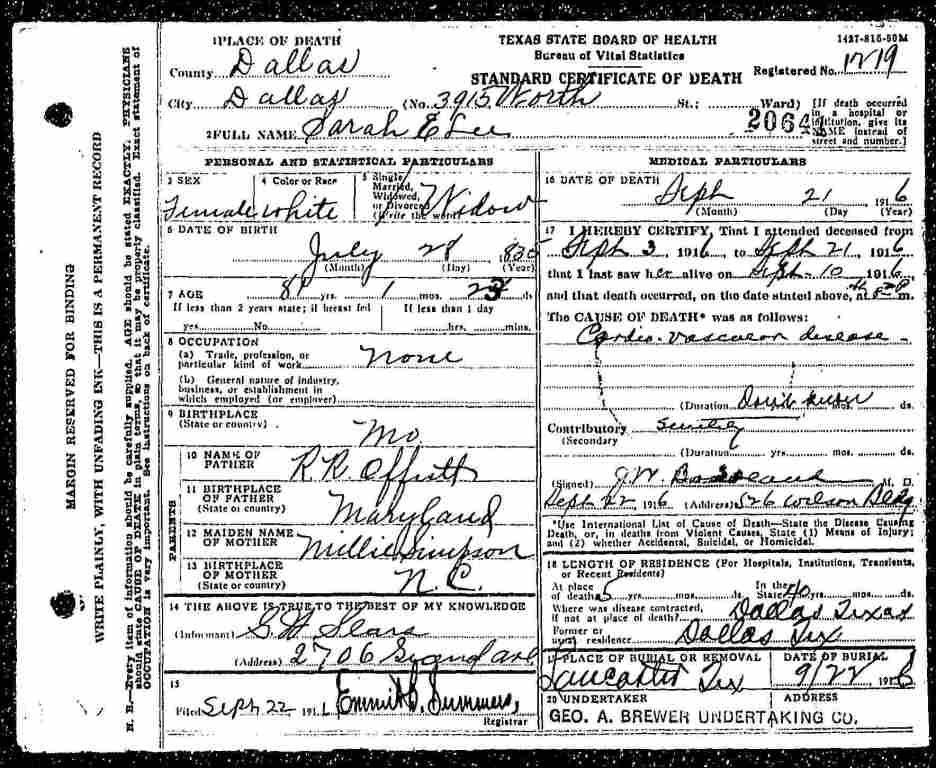 1PLACE OF DEATH
County Dallas
City Dallas (No. 3915 Worth St.; Ward)
2FULL NAME Sarah E Lee
TEXAS STATE BOARD OF HEALTH
Bureau of Vital Statistics
STANDARD CERTIFICATE OF DEATH
1427-816-50M
Registered No. 1219
[If death occurred in a hospital or institution, give its NAME instead of street and number.]
2064
PERSONAL AND STATISTICAL PARTICULARS
3 SEX
Female
4 Color or Race
White
5 Single, Married, Widowed, or Divorced (Write the word)
Widow
6 DATE OF BIRTH
July 28 1835
(Month) (Day) (Year)
7 AGE
81 yrs. 1 mos. 23 ds.
If less than 2 years state; if breast fed
yes No
If less than 1 day
hrs. mins.
8 OCCUPATION
(a) Trade, profession, or
particular kind of work None
(b) General nature of industry,
business, or establishment in
which employed (or employer)
9 BIRTHPLACE
(State or country)
Mo
PARENTS
10 NAME OF
FATHER R R Offutt
11 BIRTHPLACE
OF FATHER
(State or country) Maryland
12 MAIDEN NAME
OF MOTHER Millie Simpson
13 BIRTHPLACE
OF MOTHER
(State or country) N.C.
14 THE ABOVE IS TRUE TO THE BEST OF MY KNOWLEDGE
(Informant) Sears
(Address) 2706 ave
15
Filed Sept 22 191
Registrar
MEDICAL PARTICULARS
16 DATE OF DEATH
Sept 21 1916
(Month) (Day) (Year)
17 I HEREBY CERTIFY, That I attended deceased from
Sept 3 1916, to Sept 21, 1916
that I last saw her alive on Sept 10 1916,
and that death occurred, on the date stated above, at 8 m.
The CAUSE OF DEATH* was as follows:
Cardio-vascular disease
(Duration Don't know mos. ds.
Contributory
(Secondary
(Duration yrs. mos. ds.
(Signed) J.W. M. D.
Sept 22 1916 (Address) 526 Wilson Bldg
*Use International List of Cause of Death—State the Disease Causing
Death, or, in deaths from Violent Causes, State (1) Means of Injury;
and (2) whether Accidental, Suicidal, or Homicidal.
18 LENGTH OF RESIDENCE (For Hospitals, Institutions, Transients,
or Recent Residents)
At place of death 5 yrs. mos. ds. In the State 40 yrs. mos. ds.
Where was disease contracted,
if not at place of death? Dallas Texas
Former or
usual residence Dallas Tex
19 PLACE OF BURIAL OR REMOVAL
Lancaster Tex
DATE OF BURIAL
9/22 1916
20 UNDERTAKER ADDRESS
GEO. A. BREWER UNDERTAKING CO.
MARGIN RESERVED FOR BINDING
WRITE PLAINLY, WITH UNFADING INK—THIS IS A PERMANENT RECORD
N. B.—Every item of information should be carefully supplied. AGE should be stated EXACTLY. PHYSICIANS
should state CAUSE OF DEATH in plain terms, so that it may be properly classified. Exact statement of
OCCUPATION is very important. See instructions on back of certificate.